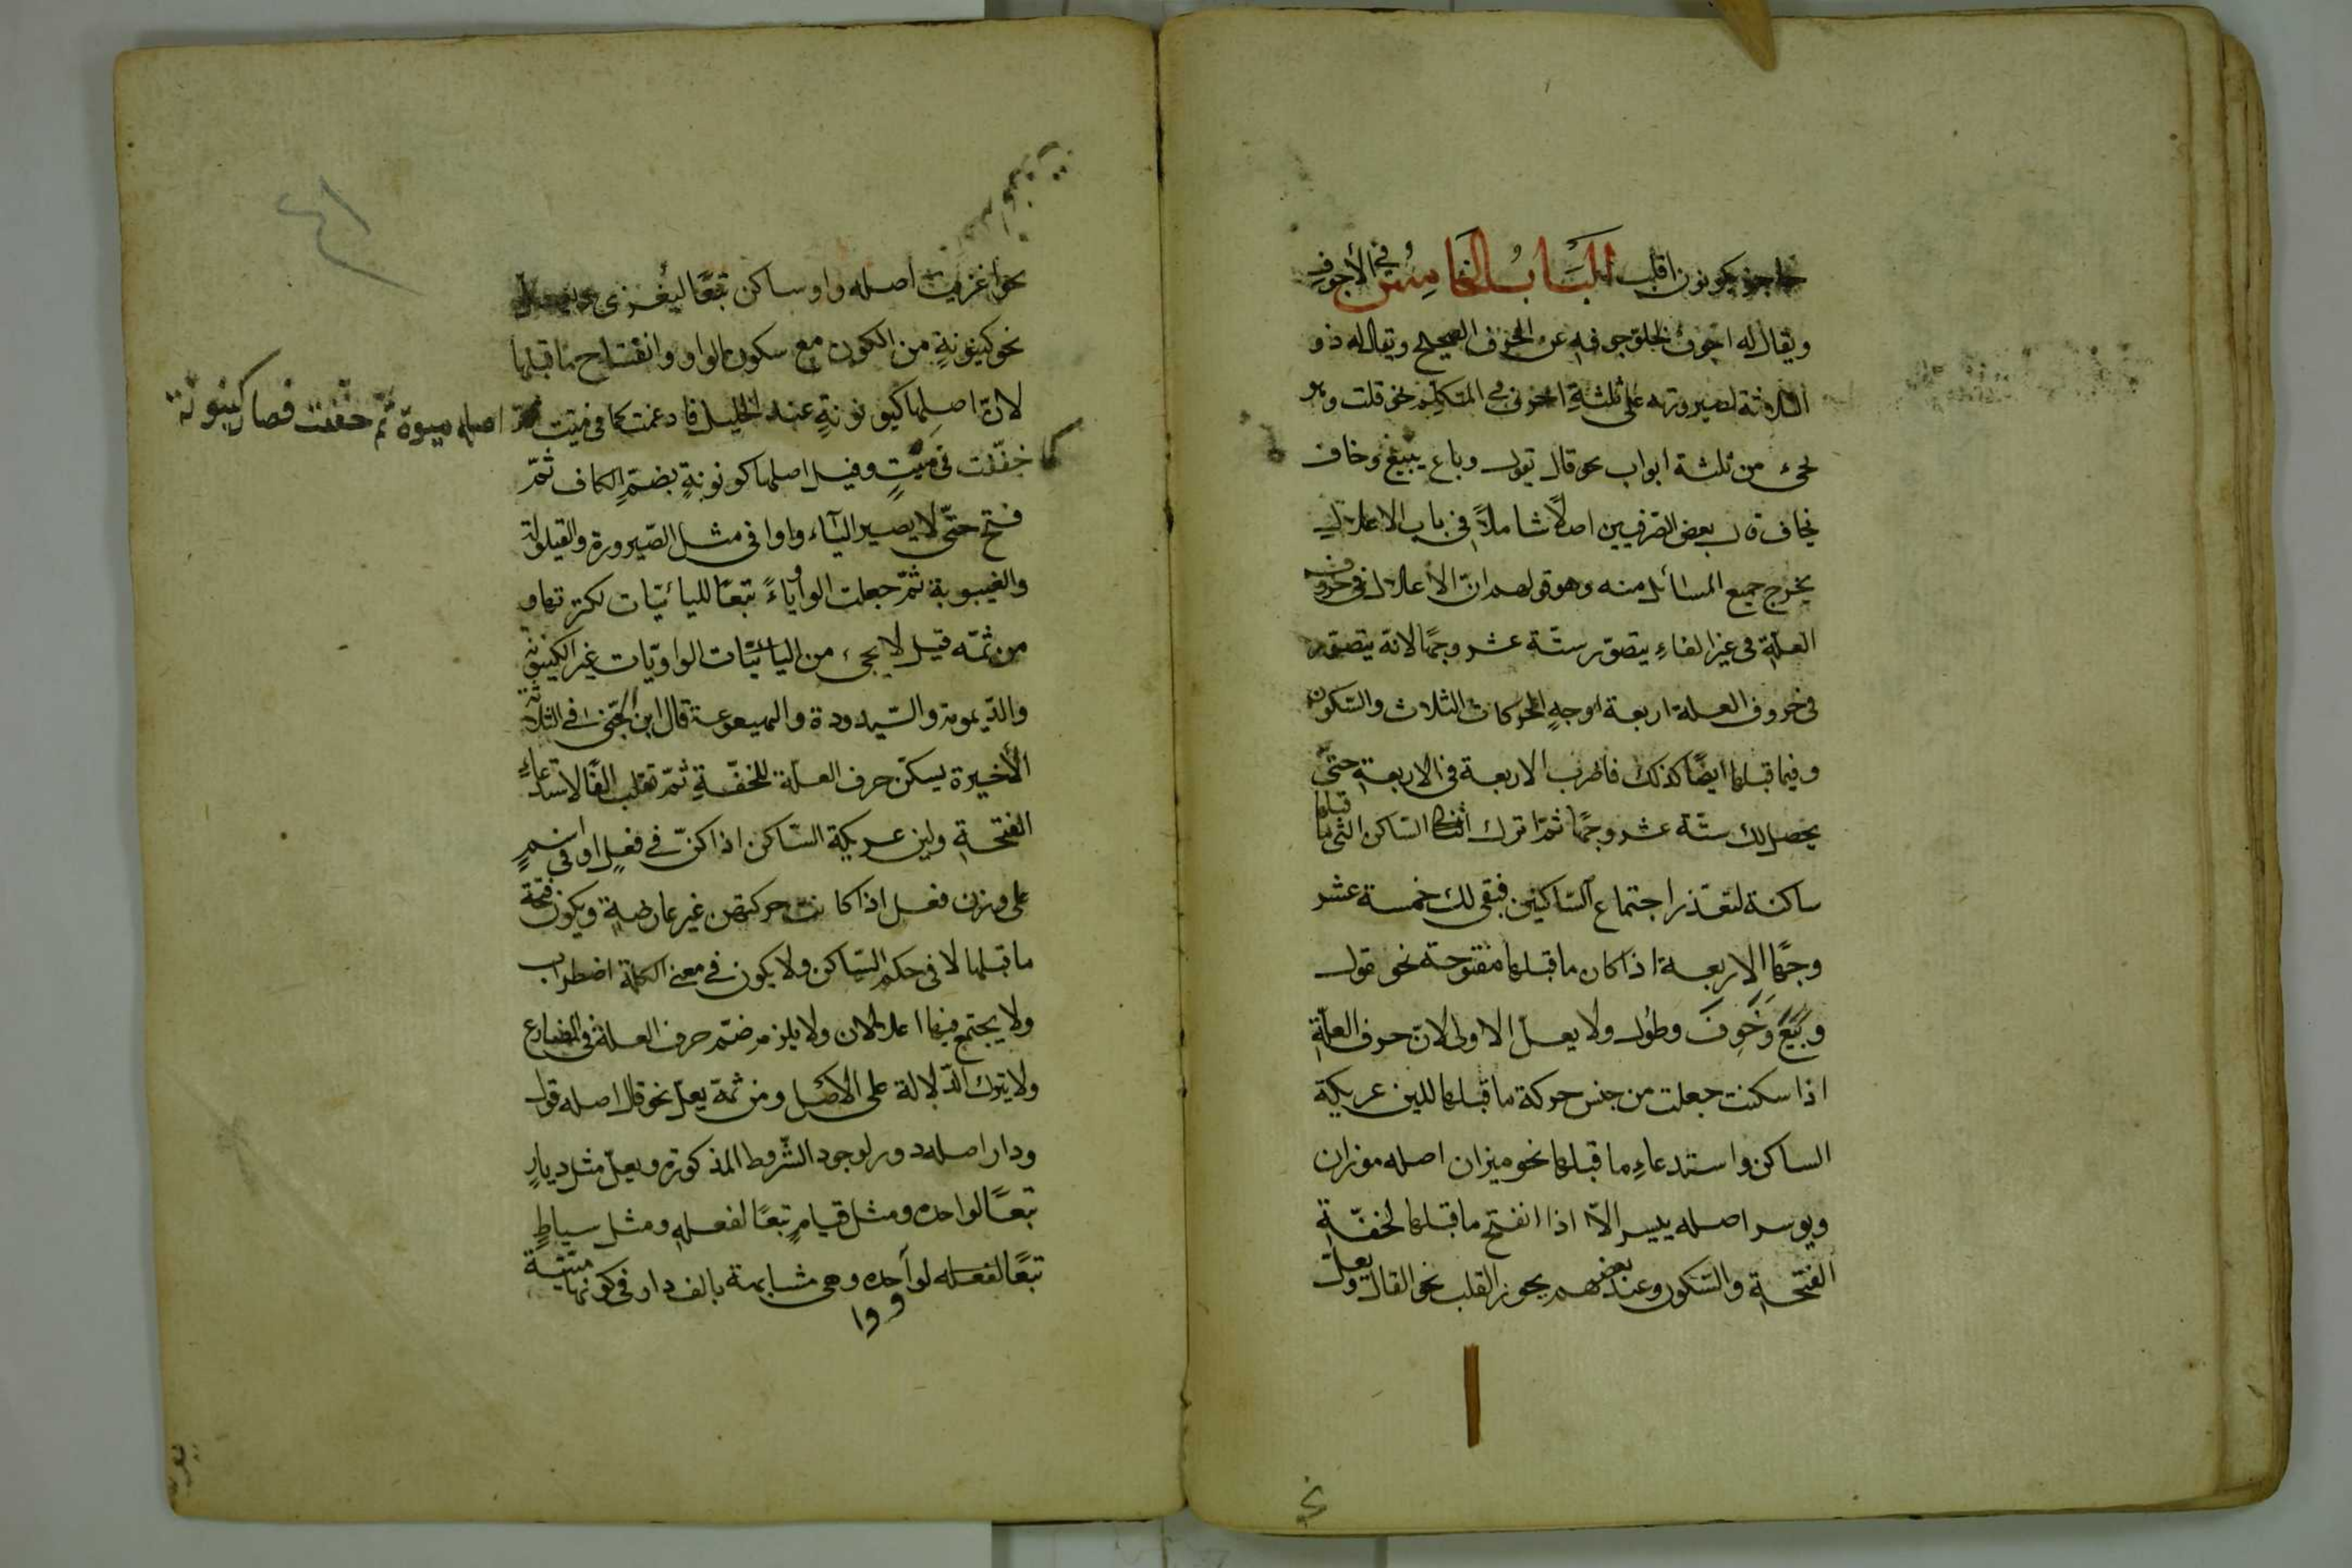 حاجز كونون اقلب الباب الخامس في الأجوف
ويقال له اجوف لخلو جوفه عن الحرف الصحيح ويقال له ذو
الثلاثة لصيرورته على ثلثة احرف في المتكلم نحو قلت وهو
يجئ من ثلثة ابواب نحو قال يقول وباع يبيع وخاف
يخاف قال بعض الصرفيين اصلاً شاملاً في باب الاعلال
يخرج جميع المسائل منه وهو قولهم ان الاعلال في حروف
العلة في غير الفاء يتصوّر ستّة عشر وجهًا لانه يتصور
في حروف العلة اربعة اوجه الحركات الثلاث والسكون
وفيما قبلها ايضًا كذلك فاضرب الاربعة في الاربعة حتى
يحصل لك ستّة عشر وجهًا ثمّ اترك الساكن التي ما قبلها
ساكنة لتعذّر اجتماع السّاكنين فبقي لك خمسة عشر
وجهًا الاربعة اذا كان ما قبلها مفتوحة نحو قول
وبَيَعَ وخَوِفَ وطول ولا يعلّ الاولى لانّ حرف العلّة
اذا سكنت جعلت من جنس حركة ما قبلها للين عريكة
الساكن واستدعاء ما قبلها نحو ميزان اصله موزان
ويوسر اصله ييسر الاّ اذا انفتح ما قبلها لخفّة
الفتحة والسّكون وعند بعضهم يجوز القلب نحو القال ويعلّ
نحو اغزيت اصله واو ساكن تبعًا ليغزى
نحو كينونةٍ من الكون مع سكون الواو وانفتاح ما قبلها
لانّ اصلها كيونونةٍ عند الخليل فادغمت كما في ميّت
اصله ميوة ثمّ خففت فصار كينونة
كما خفّفت في ميّتٍ وقيل اصلها كونونةٍ بضمّ الكاف ثمّ
فتح حتّى لا يصير الياء واوا في مثل الصّيرورة والقيلولة
والغيبوبة ثمّ جعلت الواو ياءً تبعًا لليائيّات لكثرتها و
من ثمّه قيل لا يجئ من اليائيّات الواويّات غير الكينونة
والدّيمومة والسّيدودة والهيعوعة قال ابن الجنّى في الثلاثة
الأخيرة يسكّن حرف العلّة للخفّة ثمّ تقلب الفًا لاستدعاء
الفتحة ولين عريكة السّاكن اذا كنّ في فعلٍ او في اسمٍ
على وزن فعل اذا كانت حركتهن غير عارضةٍ ويكون فتحة
ما قبلها لا في حكم السّاكن ولا يكون في معنى الكلمة اضطراب
ولا يجتمع فيها اعلالان ولا يلزم ضمّ حرف العلة في المضارع
ولا يترك الدّلالة على الاصل ومن ثمّة يعلّ نحو قال اصله قول
ودار اصله دور لوجود الشّروط المذكورة ويعلّ مثل ديارٍ
تبعًا لواحده ومثل قيامٍ تبعًا لفعله ومثل سياطٍ
تبعًا لواو واحده وهي مشابهة بالف دار في كونها ميّتة